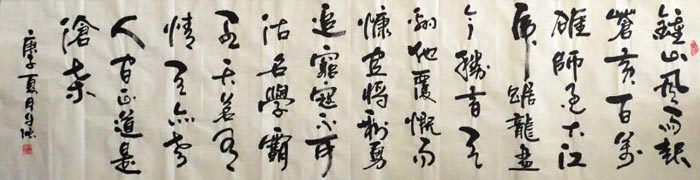 鐘山風雨起
蒼黃百萬
雄師過大江
虎踞龍盤
今勝昔天
翻地覆慨而
慷宜將剩勇
追窮寇不可
沽名學霸
王天若有
情天亦老
人间正道是
滄桑
庚子夏月